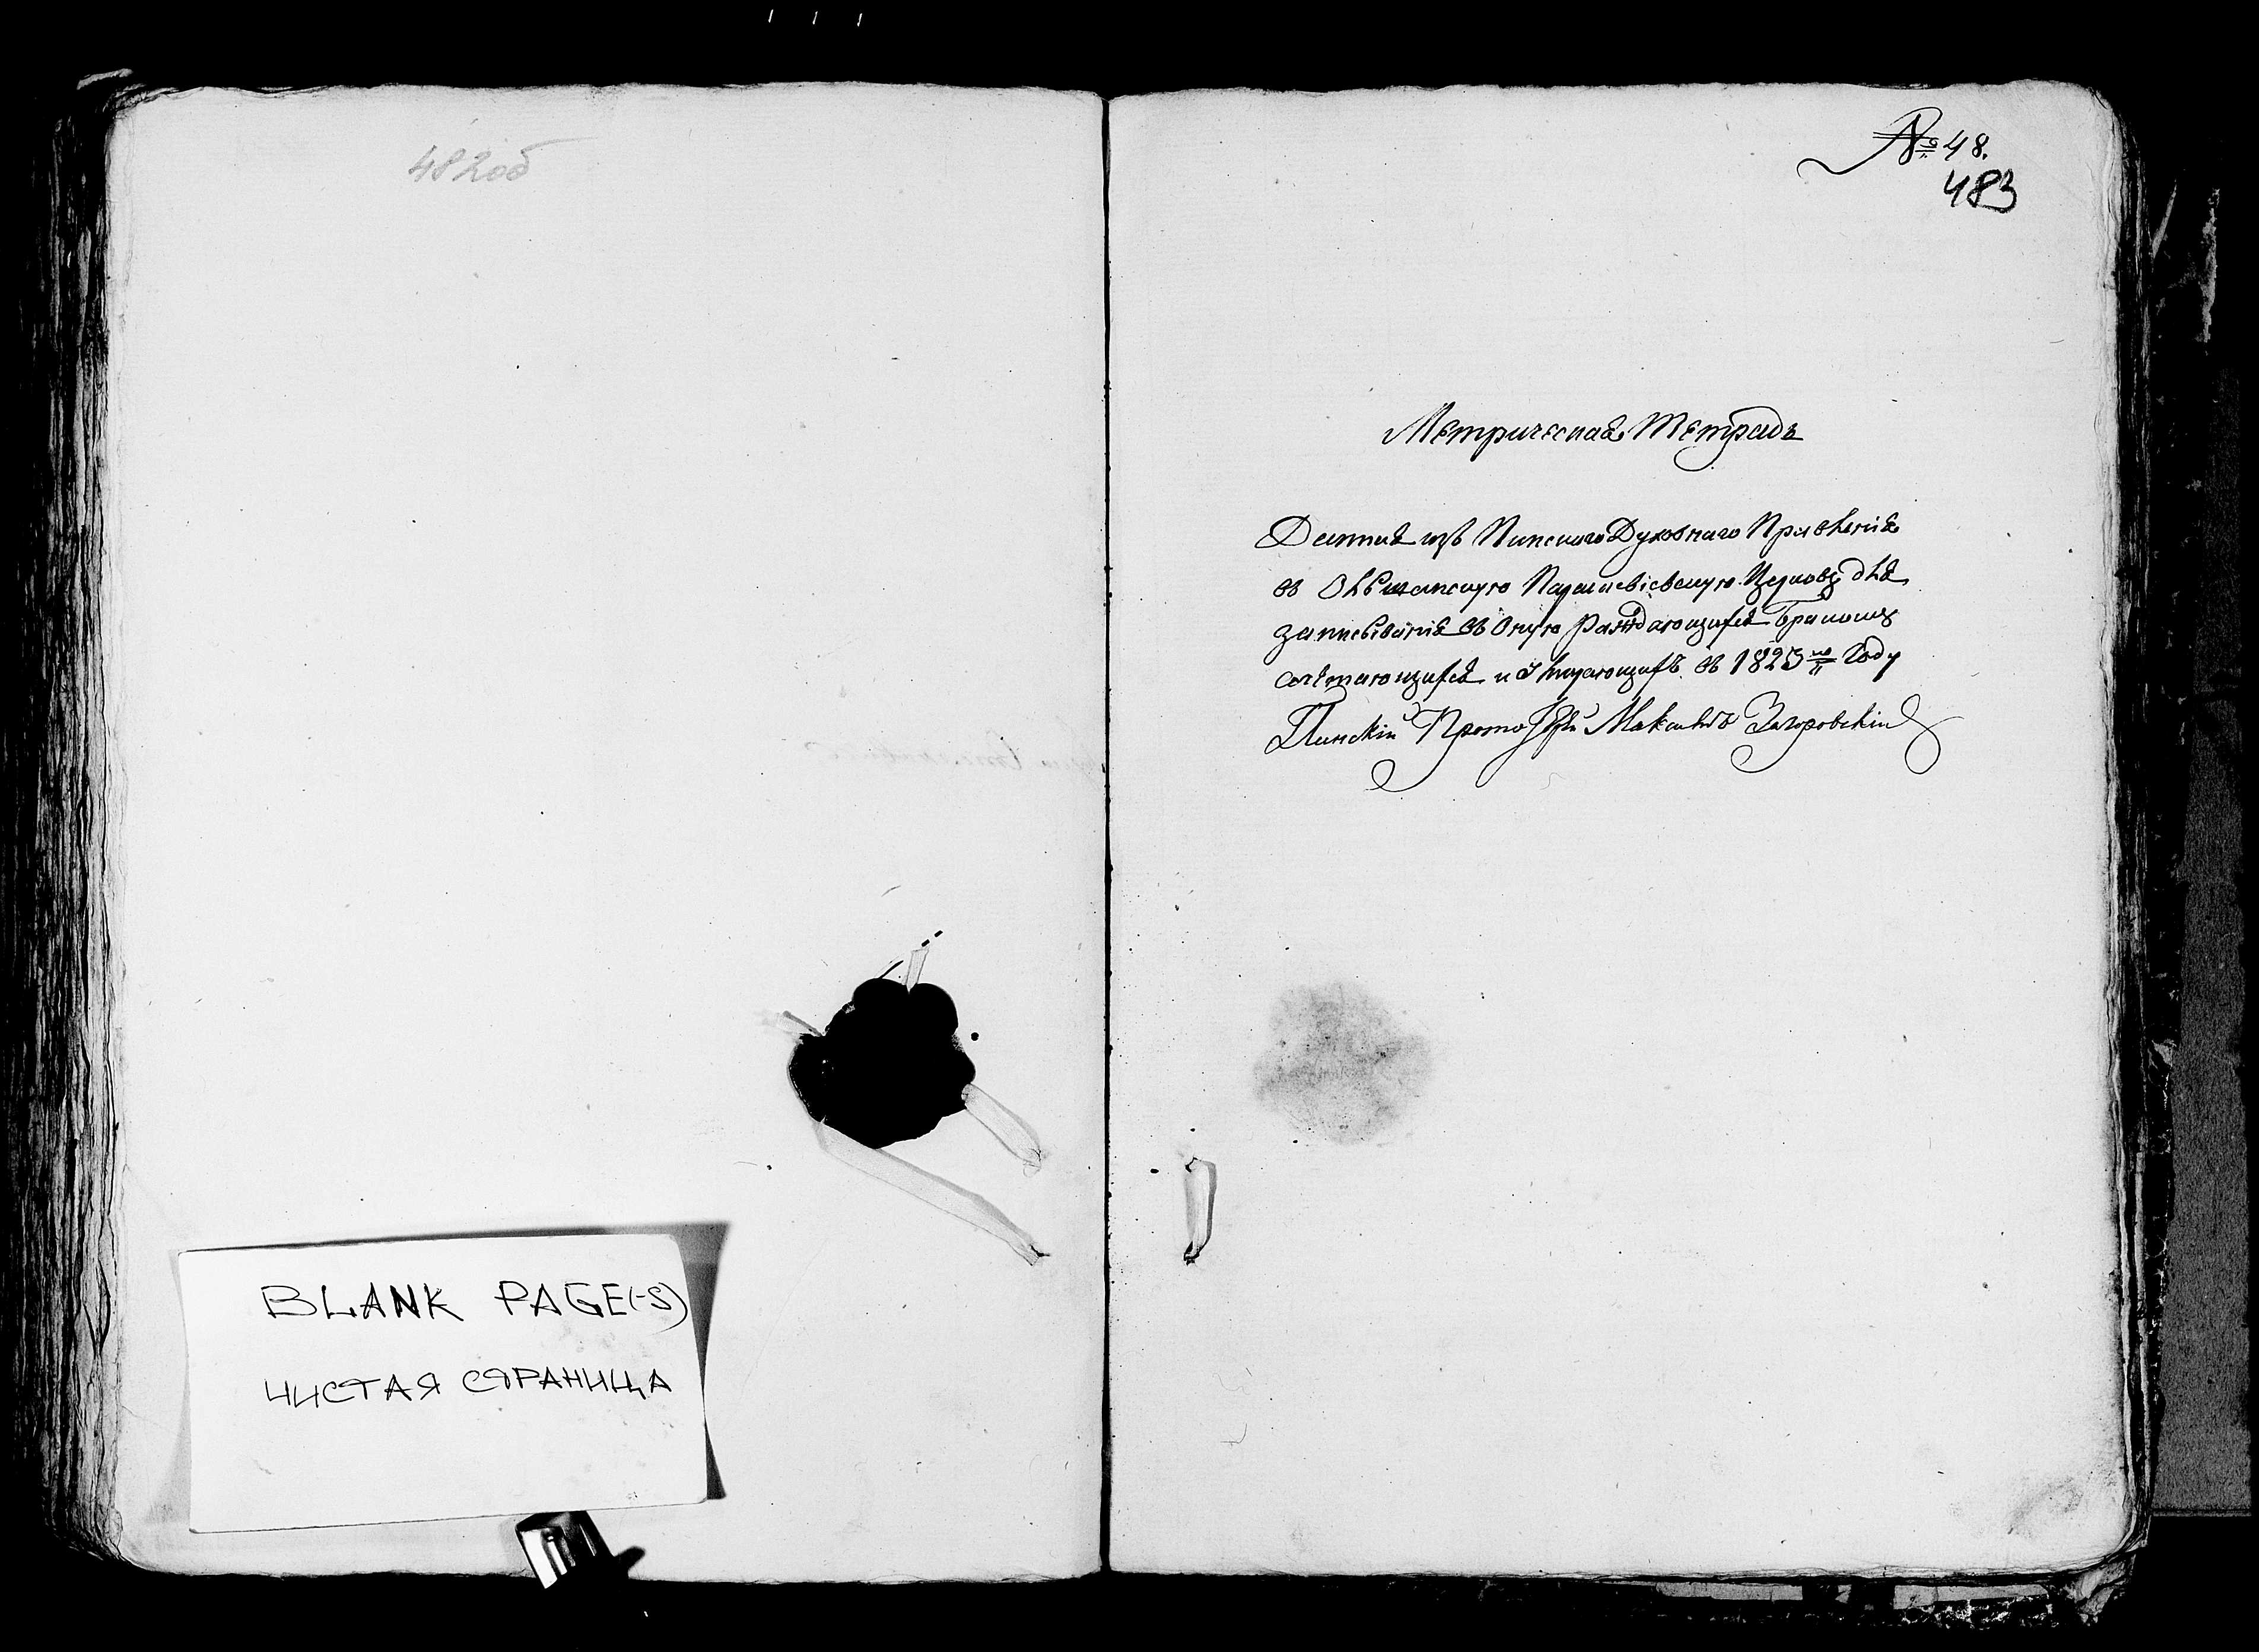 482об
BLANK PAGE(-S)
ЧИСТАЯ СТРАНИЦА
№ 48.
483
Метрическая Тетрадь
Данная изъ Пинскаго Духовнаго Правленія
въ Парасковіевскую Церковь для
записыванія въ оную раждающихся Бракомъ
сочетающихся и Умирающихъ въ 1825 Году
Пинскій Протоіерей Максимъ Загоровскій